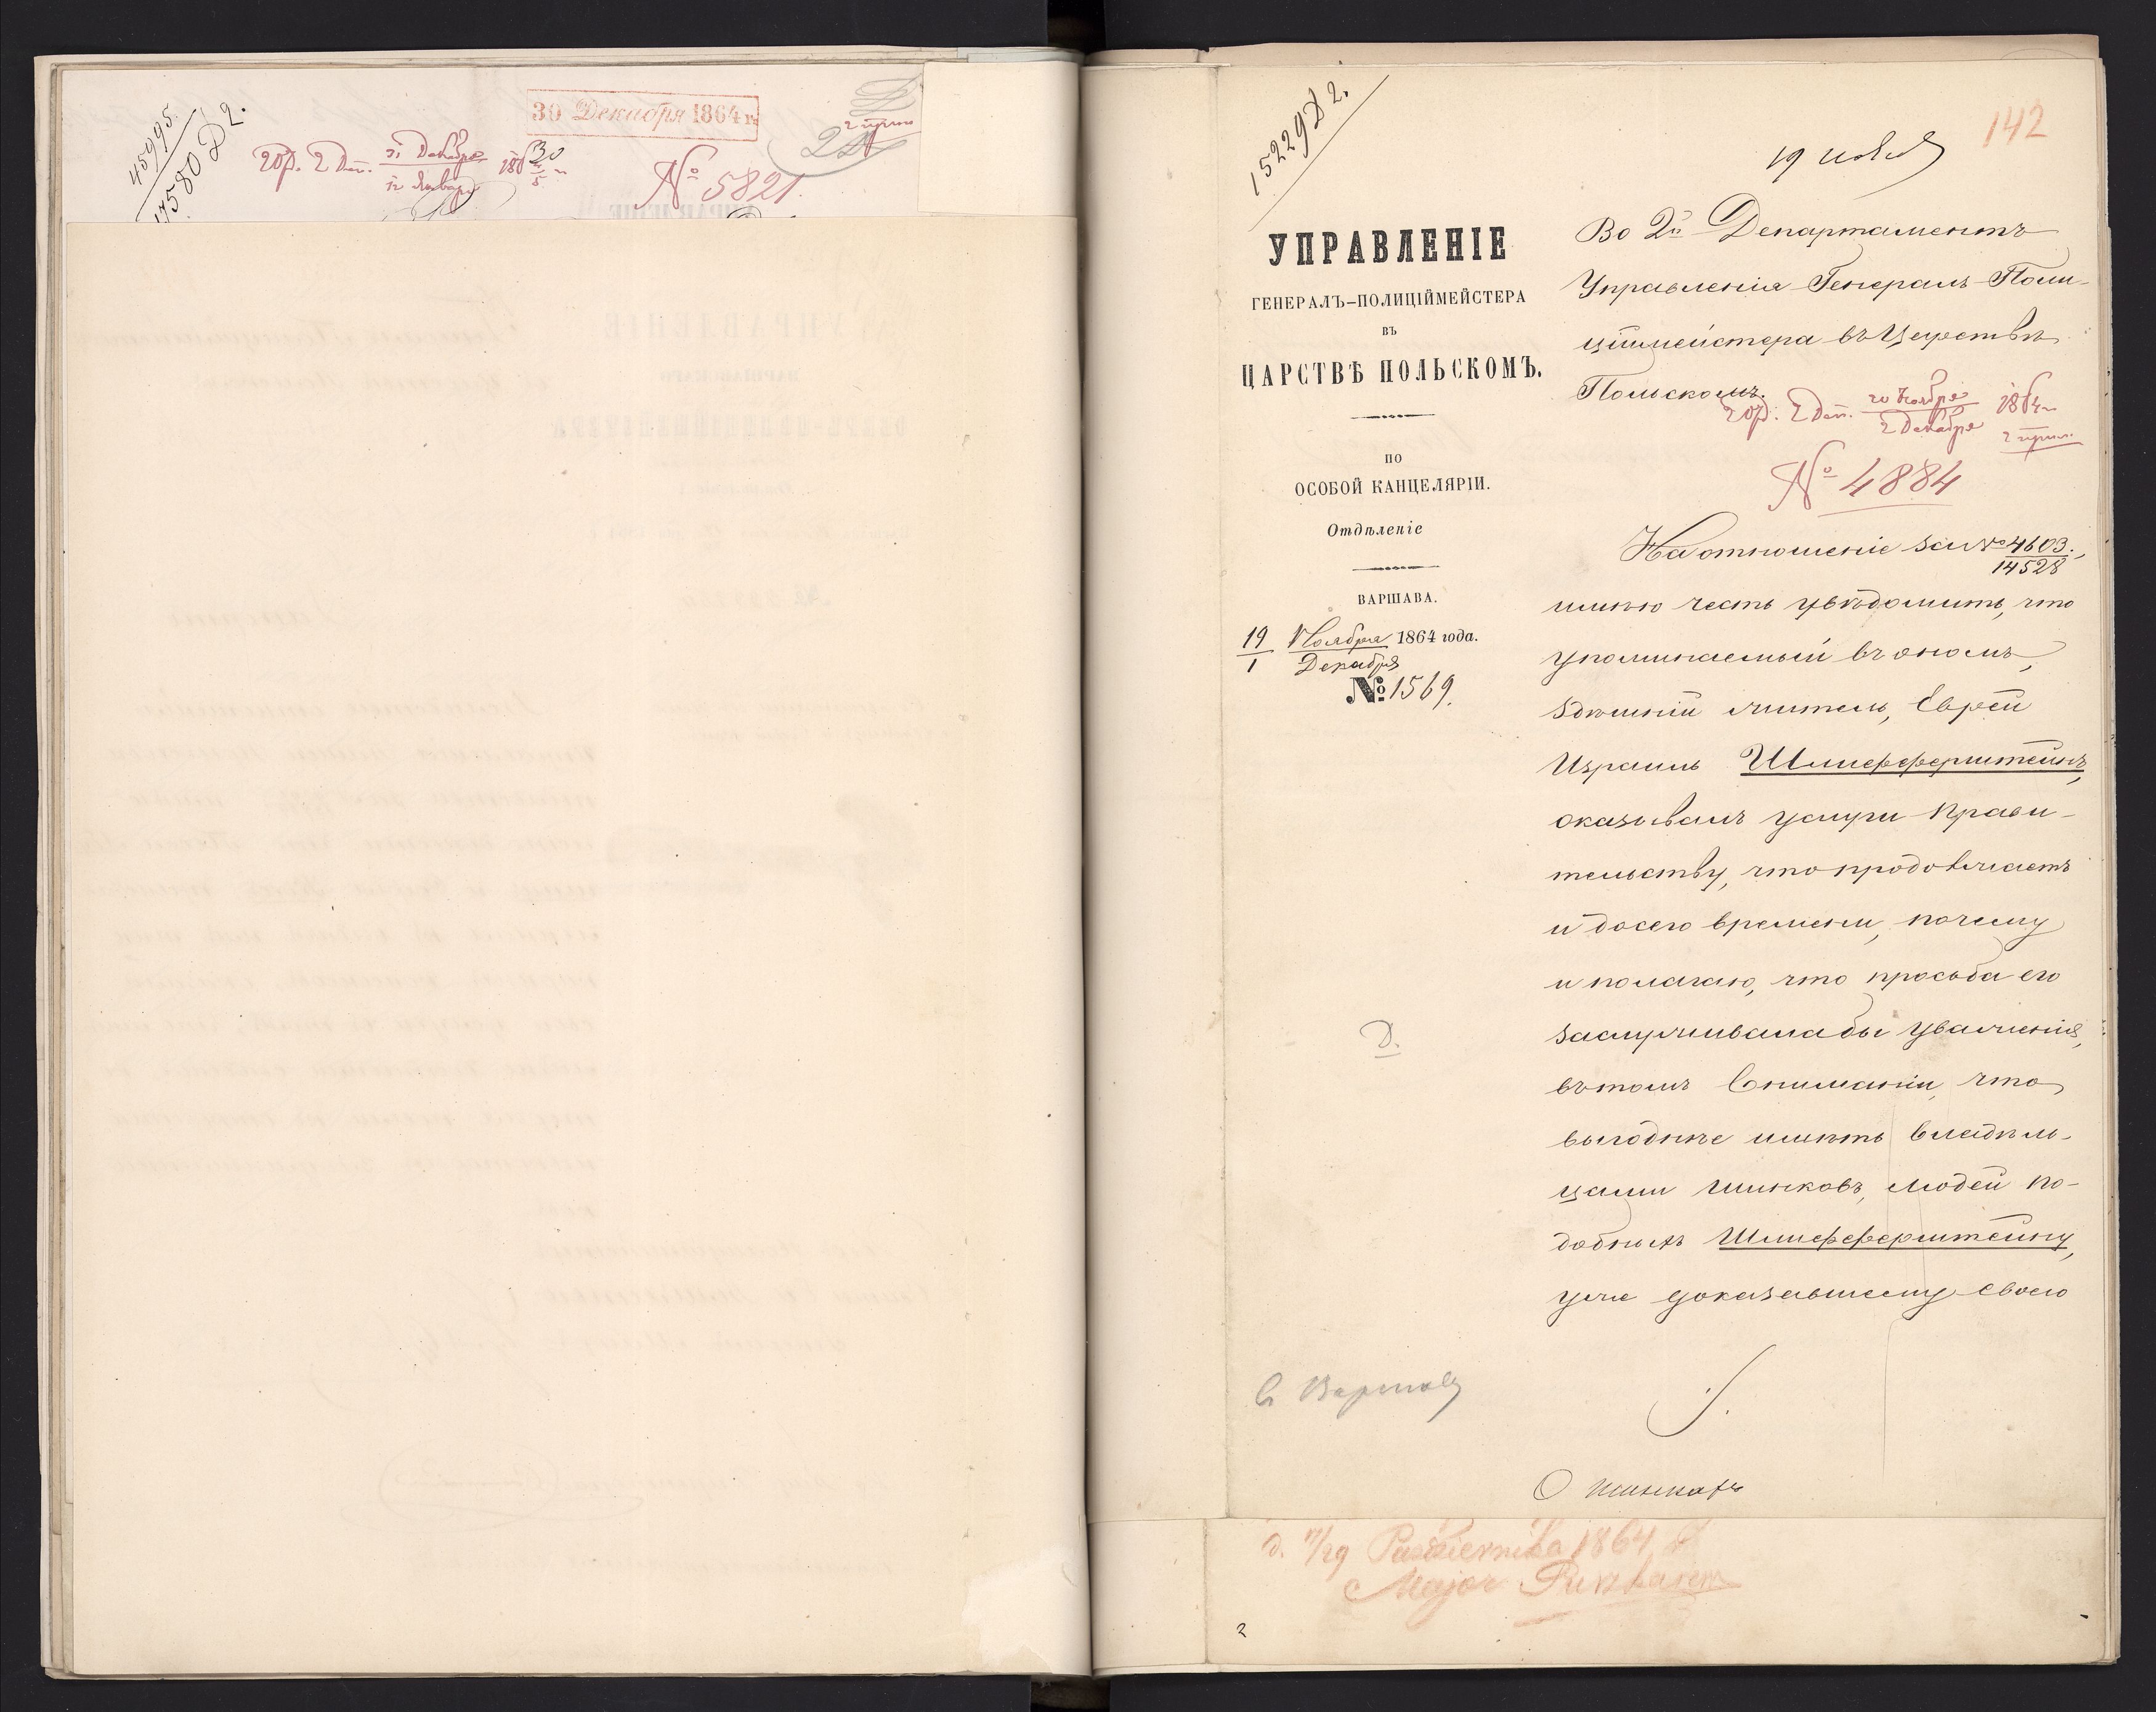 45995
17580 Д 2.
30 Декабря 1864 г.
№ 5821.
15229 Д 2.
142
19 Ноября
УПРАВЛЕНІЕ
ГЕНЕРАЛЪ-ПОЛИЦІЙМЕЙСТЕРА
ВЪ
ЦАРСТВѢ ПОЛЬСКОМЪ.
ПО
ОСОБОЙ КАНЦЕЛЯРІИ.
Отдѣленіе
ВАРШАВА.
19 Ноября 1864 года.
1 Декабря
№ 1569.
Во 2й Департаментъ
Управленія Генералъ-Поли-
ціймейстера въ Царствѣ
Польскомъ.
20 Ноября 1864
2 Декабря
№ 4884
На отношеніе за № 4603.,
14528
имѣю честь увѣдомить, что
упоминаемый въ ономъ,
здѣшній житель, Еврей
Израиль Шлифферштейнъ,
оказывалъ услуги Прави-
тельству, что продолжаетъ
и до сего времени, почему
и полагаю, что просьба его
заслуживала бы уваженія,
въ томъ вниманіи, что
выгоднѣе имѣть владѣль-
цами шинковъ, людей по-
добныхъ Шлифферштейну,
уже доказавшему свою
Д.
в Варшаву
О шинкахъ
d. 17/29 Października 1864 r.
Major
2